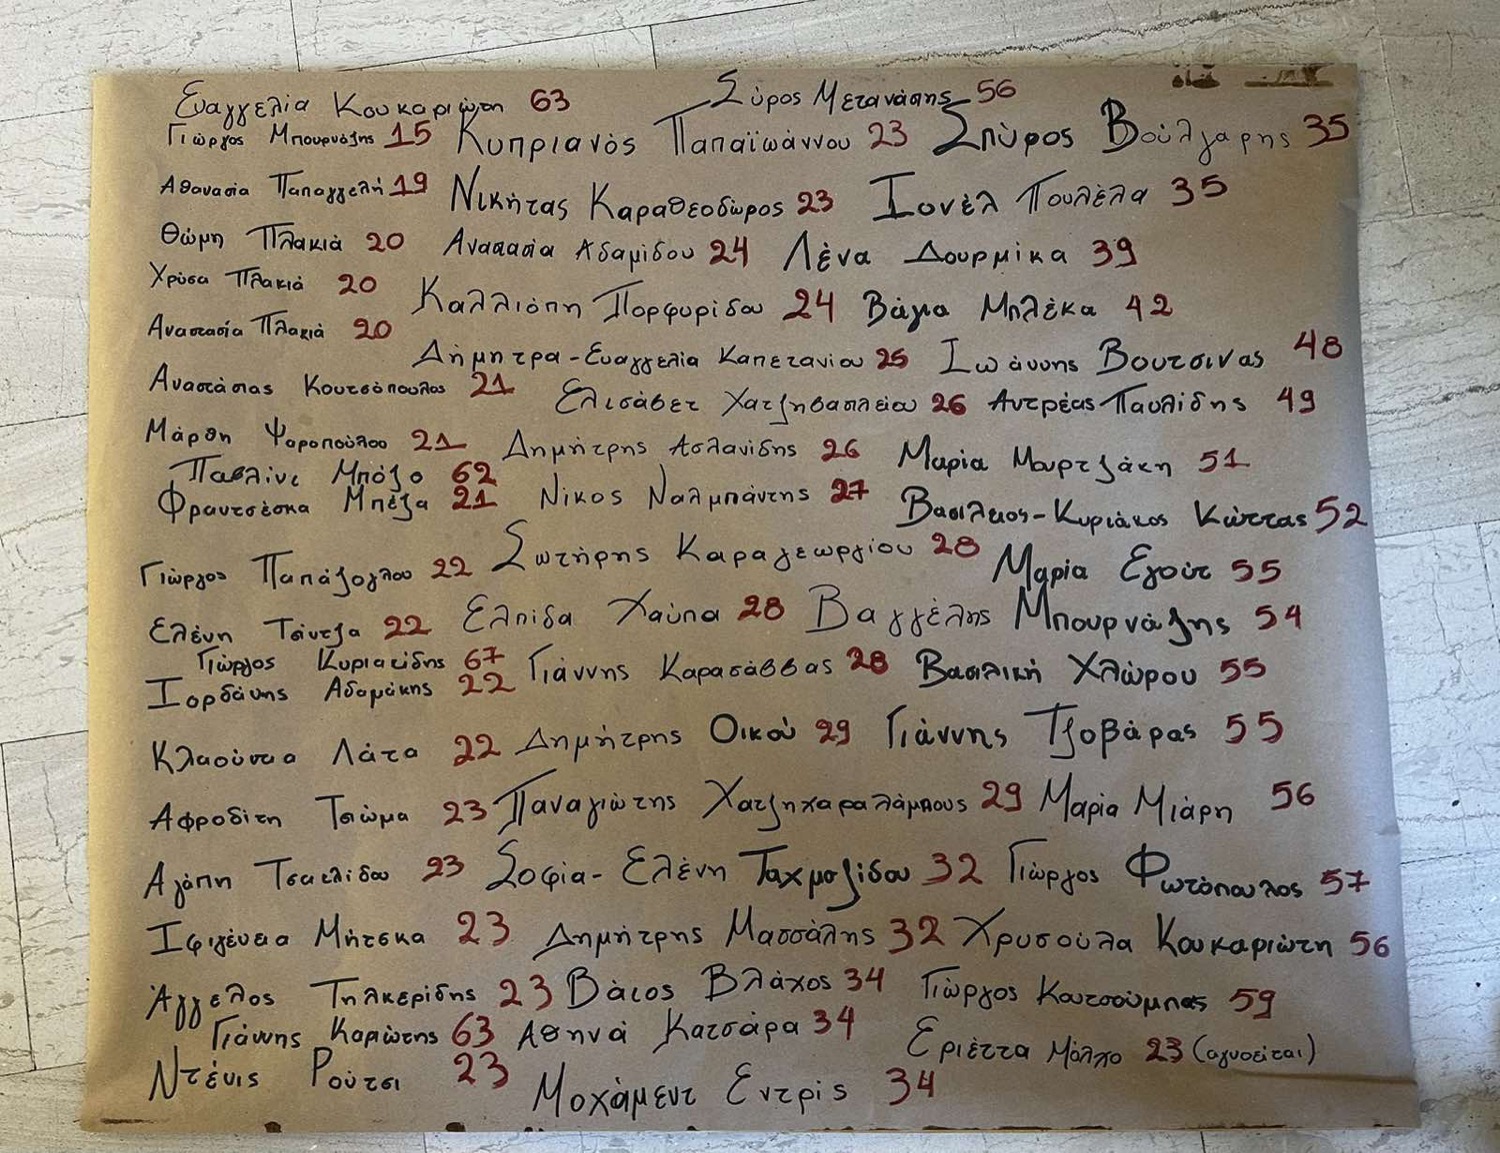 Ευαγγελία Κουκαριώτη 63 Σύρος Μετανάστης 56
Γιώργος Μπουρνάζης 15 Κυπριανός Παπαϊωάννου 23 Σπύρος Βούλγαρης 35
Αθανασία Παπαγγελή 19 Νικήτας Καραθεοδώρος 23 Ιονέλ Πουλέλα 35
Θώμη Πλακιά 20 Αναστασία Αδαμίδου 24 Λένα Δουρμίκα 39
Χρύσα Πλακιά 20 Καλλιόπη Πορφυρίδου 24 Βάγια Μπλέκα 42
Αναστασία Πλακιά 20 Δήμητρα-Ευαγγελία Καπετανίου 25 Ιωάννης Βουτσινας 48
Αναστάσιας Κουτσόπουλος 21 Ελισάβετ Χατζηβασιλείου 26 Αντρέας Παυλίδης 49
Μάρθη Ψαροπούλου 21 Δημήτρης Ασλανίδης 26 Μαρία Μουρτζάκη 51
Παβλίνι Μπόζο 62
Φραντσέσκα Μπέζα 21 Νίκος Ναλμπάντης 27 Βασίλειος-Κυριάκος Κώττας 52
Γιώργος Παπάζογλου 22 Σωτήρης Καραγεωργίου 28 Μαρία Εγούτ 55
Ελένη Τσίντζα 22 Ελπίδα Χαύπα 28 Βαγγέλης Μπουρνάζης 54
Γιώργος Κυριακίδης 67 Γιάννης Καρασάββας 28 Βασιλική Χλώρου 55
Ιορδάνης Αδαμάκης 22
Κλαούντια Λάτα 22 Δημήτρης Οικού 29 Γιάννης Τζοβάρας 55
Αφροδίτη Τσιώμα 23 Παναγιώτης Χατζηχαραλάμπους 29 Μαρία Μιάρη 56
Αγάπη Τσακλίδου 23 Σοφία-Ελένη Ταχμαζίδου 32 Γιώργος Φωτόπουλος 57
Ιφιγένεια Μήτσκα 23 Δημήτρης Μασσάλης 32 Χρυσούλα Κουκαριώτη 56
Άγγελος Τηλκερίδης 23 Βάιος Βλάχος 34 Γιώργος Κουτσούμπας 59
Γιάννης Καριώτης 63 Αθηνά Κατσάρα 34 Εριέττα Μόλχο 23 (αγνοείται)
Ντένις Ρούτσι 23 Μοχάμεντ Εντρίς 34